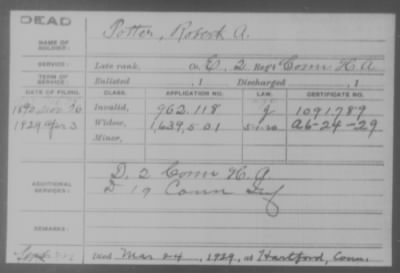 DEAD
NAME OF SOLDIER: Potter, Robert A.
SERVICE: Late rank, Co. E, 2 Reg't Conn H.A.
TERM OF SERVICE: Enlisted , 1 Discharged , 1
DATE OF FILING. CLASS. APPLICATION NO. LAW. CERTIFICATE NO.
1890, Nov. Invalid, 962.118 g 1091789
1929 Apr 3 Widow, 1,639,501 5-1-20 a6-24-29
Minor,
ADDITIONAL SERVICES: D. 2 Conn H.A.
D 19 Conn Inf
REMARKS:
Died Mar 24, 1929, at Hartford, Conn.